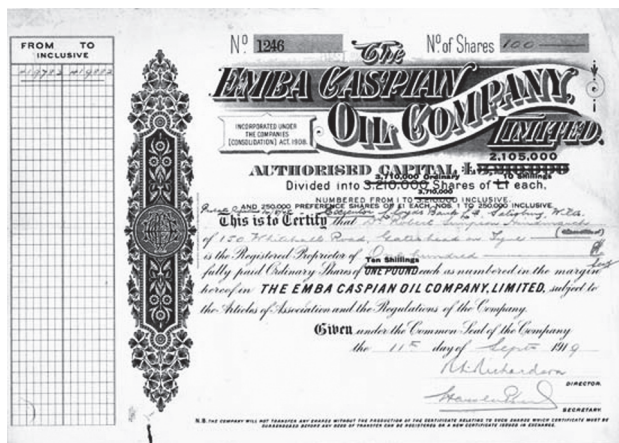 FROM TO
INCLUSIVE
Nº 1246
Nº of Shares 100
The
EMBA CASPIAN
OIL COMPANY,
LIMITED.
INCORPORATED UNDER
THE COMPANIES
(CONSOLIDATION) ACT, 1908.
2,105,000
AUTHORISED CAPITAL
3,710,000 Ordinary 10 Shillings
Divided into 3,210,000 Shares of £1 each.
3,710,000
NUMBERED FROM 1 TO 3,210,000 INCLUSIVE.
AND 250,000 PREFERENCE SHARES OF £1 EACH, NOS. 1 TO 250,000 INCLUSIVE.
Lloyds Bank Salisbury, Wilts.
This is to Certify that Robert Simpson
of 150 Whitehall Road, Gateshead on Tyne
is the Registered Proprietor of One hundred
Ten Shillings
fully paid Ordinary Shares of ONE POUND each as numbered in the margin
hereof in THE EMBA CASPIAN OIL COMPANY, LIMITED, subject to
the Articles of Association and the Regulations of the Company.
Given under the Common Seal of the Company
the 11th day of Sept 1919
Richardson
DIRECTOR.
SECRETARY
N.B. THE COMPANY WILL NOT TRANSFER ANY SHARES WITHOUT THE PRODUCTION OF THE CERTIFICATE RELATING TO SUCH SHARES WHICH CERTIFICATE MUST BE
SURRENDERED BEFORE ANY DEED OF TRANSFER CAN BE REGISTERED OR A NEW CERTIFICATE ISSUED IN EXCHANGE.